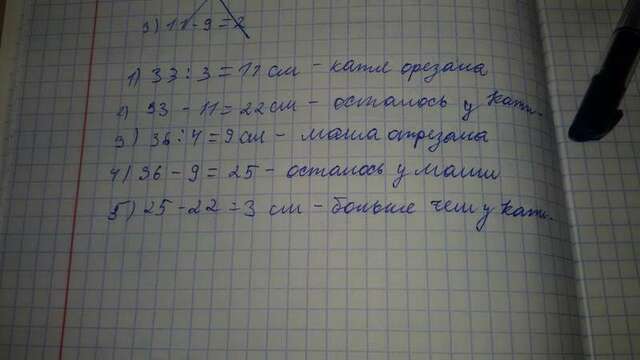 3) 11-9=2
1) 33:3=11 см - катя орезала
2) 33-11=22 см - осталось у Кати.
3) 36:4=9 см - маша отрезала
4) 36-9=25 - осталось у маши
5) 25-22=3 см - больше чем у Кати.